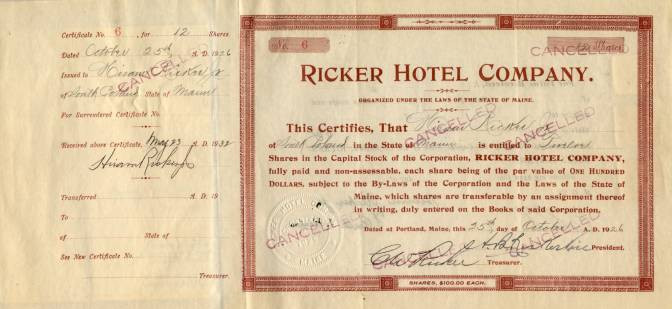 Certificate No. 6, for 12 Shares
Dated October 25th A. D. 1926
Issued to Hiram Ricker Jr
of South Poland State of Maine
For Surrendered Certificate No.
Received above Certificate, May 23 A. D. 1932
Hiram Ricker Jr
Transferred A. D. 19
To
of State of
See New Certificate No.
Treasurer.
CANCELLED
No. 6
Shares
CANCELLED
RICKER HOTEL COMPANY.
ORGANIZED UNDER THE LAWS OF THE STATE OF MAINE.
This Certifies, That Hiram Ricker
CANCELLED
CANCELLED
of South Poland in the State of Maine is entitled to Twelve
Shares in the Capital Stock of the Corporation, RICKER HOTEL COMPANY,
fully paid and non-assessable, each share being of the par value of ONE HUNDRED
DOLLARS, subject to the By-Laws of the Corporation and the Laws of the State of
Maine, which shares are transferable by an assignment thereof
in writing, duly entered on the Books of said Corporation.
CANCELLED
CANCELLED
Dated at Portland, Maine, this 25th day of October A. D. 1926
President.
CANCELLED
CANCELLED
Ricker
Treasurer.
SHARES, $100.00 EACH.